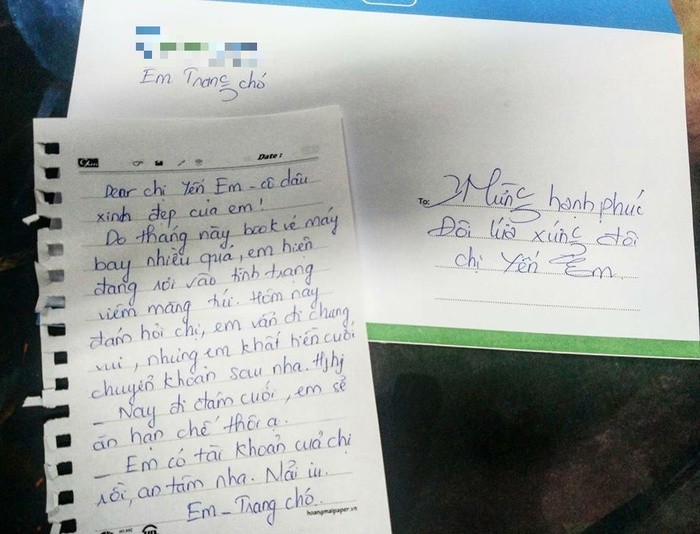 Em Trang chó
To: Mừng hạnh phúc
Đôi lứa xứng đôi
chị Yến Em
Date:
Dear chị Yến Em - cô dâu
xinh đẹp của em!
Do tháng này book vé máy
bay nhiều quá, em hiện
đang rơi vào tình trạng
viêm màng túi. Hôm nay
đám hỏi chị, em vẫn đi chung
vui, nhưng em khất tiền cưới
chuyển khoản sau nha. Hjhj
- Nay đi đám cưới, em sẽ
ăn hạn chế thôi ạ.
- Em có tài khoản của chị
rồi, an tâm nha. Nải iu.
Em - Trang chó.
hoangmaipaper.vn